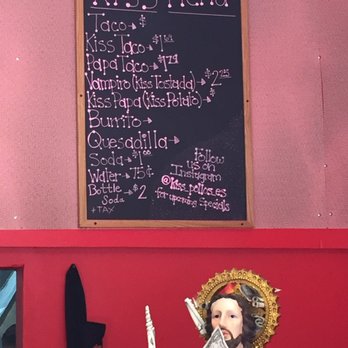 Kiss Menu
Taco→
Kiss Taco→
Papa Taco→
Vampiro (Kiss Tostada)→
Kiss Papa (Kiss Potato)→
Burrito→
Quesadilla→
Soda→$1.00
Water→75¢
Bottle Soda→$2
+TAX
Follow
us on
Instagram
for upcoming Specials